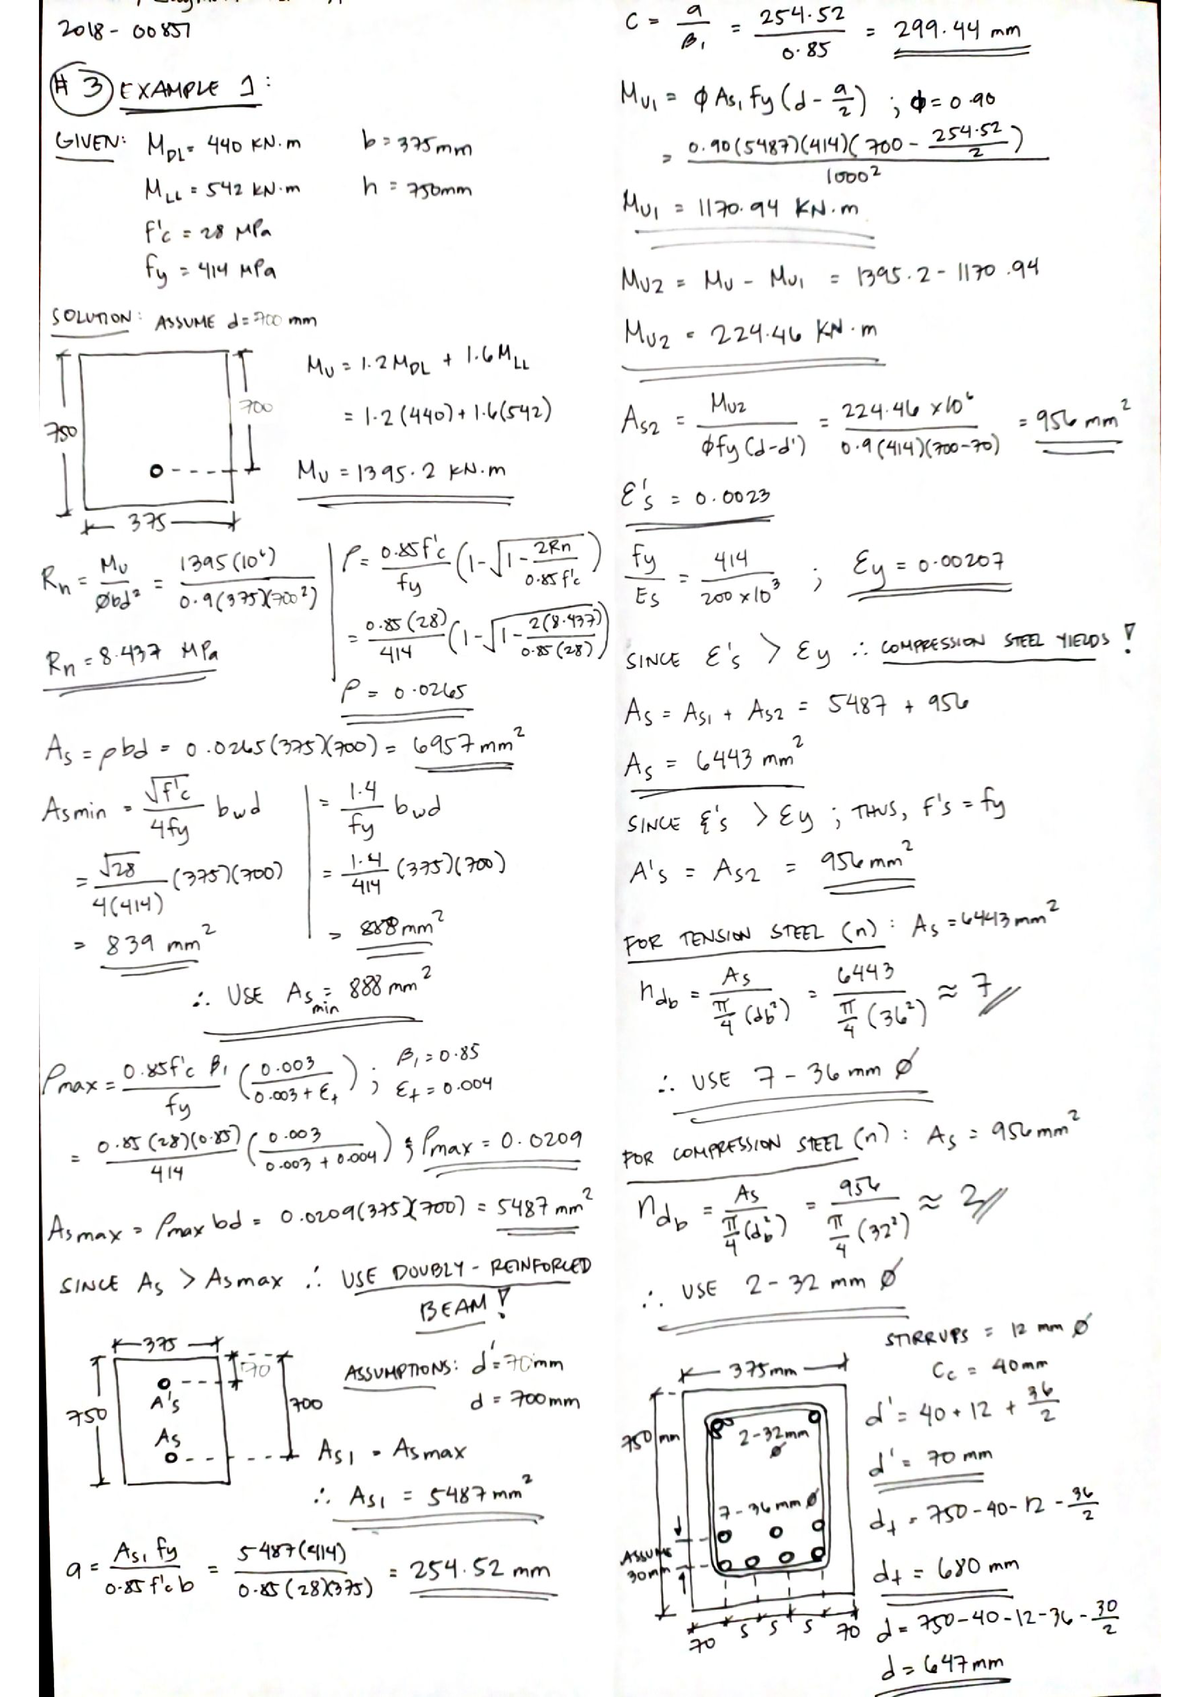 2018-00857
#3 EXAMPLE 1:
GIVEN: M_DL = 440 KN.m b = 375mm
M_LL = 542 KN.m h = 750mm
f'c = 28 MPa
fy = 414 MPa
SOLUTION: ASSUME d = 700 mm
750
700
375
Mu = 1.2 M_DL + 1.6 M_LL
= 1.2 (440) + 1.6 (542)
Mu = 1395.2 KN.m
Rn = Mu / Øbd² = 1395 (10⁶) / 0.9 (375)(700²)
Rn = 8.437 MPa
ρ = 0.85f'c / fy (1 - √(1 - 2Rn / 0.85f'c))
= 0.85 (28) / 414 (1 - √(1 - 2(8.437) / 0.85 (28)))
ρ = 0.0265
As = ρbd = 0.0265 (375)(700) = 6957 mm²
Asmin = √f'c / 4fy bwd
= √28 / 4(414) (375)(700)
= 839 mm²
= 1.4 / fy bwd
= 1.4 / 414 (375)(700)
= 888 mm²
∴ USE As min = 888 mm²
ρmax = 0.85f'c β₁ / fy (0.003 / 0.003 + εt) ; β₁ = 0.85
εt = 0.004
= 0.85 (28)(0.85) / 414 (0.003 / 0.003 + 0.004) ; ρmax = 0.0209
Asmax = ρmax bd = 0.0209 (375)(700) = 5487 mm²
SINCE As > Asmax ∴ USE DOUBLY-REINFORCED
BEAM!
375
70
750
700
A's
As
ASSUMPTIONS: d' = 70mm
d = 700mm
As1 = Asmax
∴ As1 = 5487 mm²
a = As1 fy / 0.85 f'c b = 5487 (414) / 0.85 (28)(375) = 254.52 mm
C = a / β₁ = 254.52 / 0.85 = 299.44 mm
Mu1 = φ As1 fy (d - a/2) ; φ = 0.90
= 0.90 (5487)(414)(700 - 254.52 / 2) / 1000²
Mu1 = 1170.94 KN.m
Mu2 = Mu - Mu1 = 1395.2 - 1170.94
Mu2 = 224.46 KN.m
As2 = Mu2 / φfy (d-d') = 224.46 x10⁶ / 0.9 (414)(700-70) = 956 mm²
ε's = 0.0023
fy / Es = 414 / 200 x 10³ ; εy = 0.00207
SINCE ε's > εy ∴ COMPRESSION STEEL YIELDS!
As = As1 + As2 = 5487 + 956
As = 6443 mm²
SINCE ε's > εy ; THUS, f's = fy
A's = As2 = 956 mm²
FOR TENSION STEEL (n): As = 6443 mm²
ndb = As / π/4 (db²) = 6443 / π/4 (36²) ≈ 7
∴ USE 7-36 mm Ø
FOR COMPRESSION STEEL (n): As = 956 mm²
ndb = As / π/4 (db²) = 956 / π/4 (32²) ≈ 2
∴ USE 2-32 mm Ø
375mm
750 mm
2-32mm
Ø
7-36 mm Ø
ASSUME
30mm
70 S S S 70
STIRRUPS = 12 mm Ø
Cc = 40mm
d' = 40 + 12 + 36/2
d' = 70 mm
dt = 750-40-12 - 36/2
dt = 680 mm
d = 750-40-12-36 - 30/2
d = 647mm